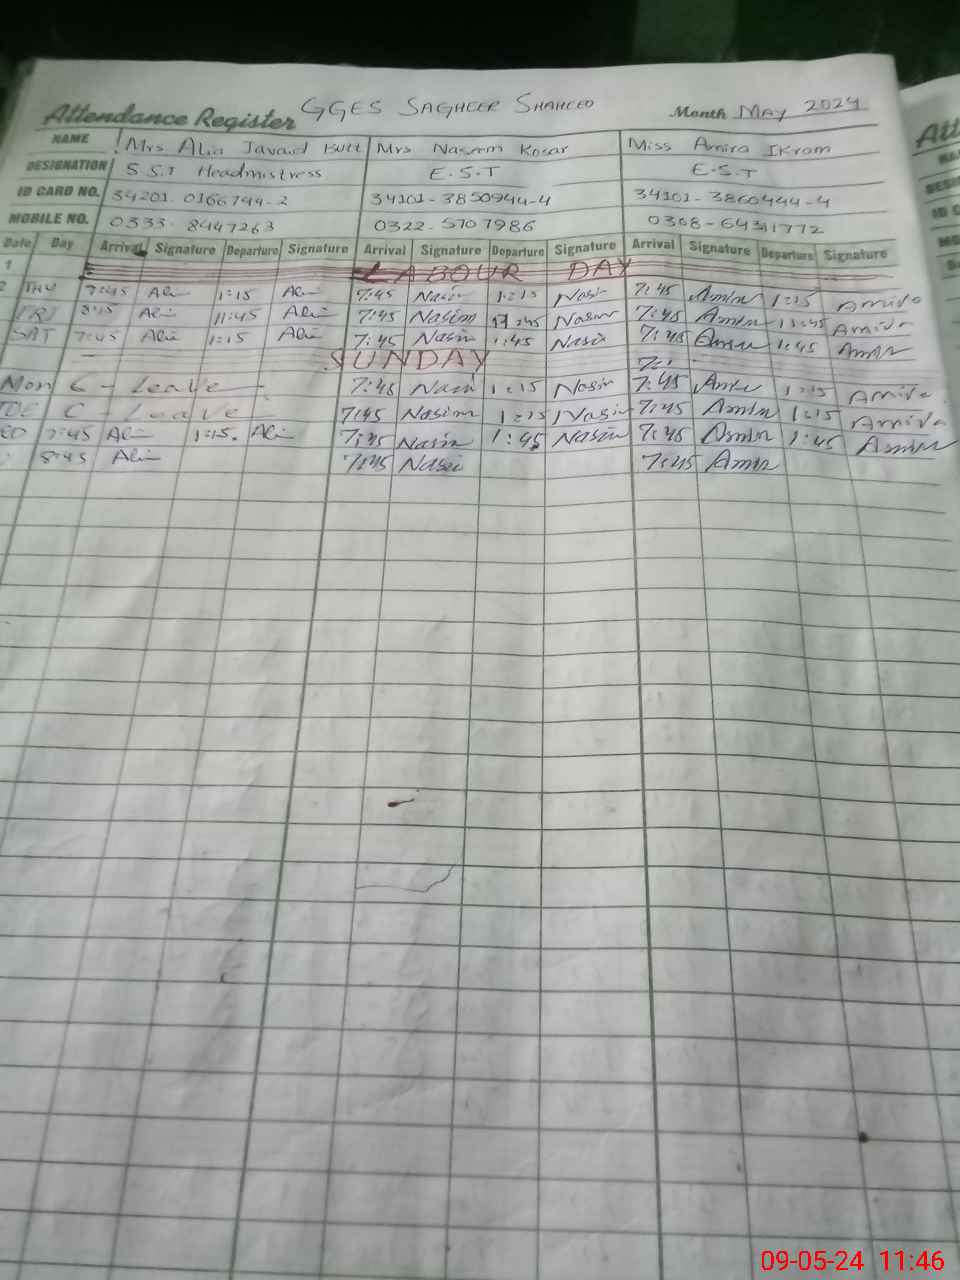 Attendance Register GGES SAGHEER SHAHEED Month MAY 2024
NAME Mrs Alia Javaid Butt Mrs Naseem Kosar Miss Amira Ikram
DESIGNATION S.S.T Headmistress E.S.T E.S.T
ID CARD NO. 34201.0166794-2 34101-3850944-4 34101-3860444-4
MOBILE NO. 0333-8447263 0322.5707986 0308-6431772
Date Day Arrival Signature Departure Signature Arrival Signature Departure Signature Arrival Signature Departure Signature
1 LABOUR DAY
2 THU 7:45 Ali 1:15 Ali 7:45 Nasim 1:15 Nasim 7:45 Amira 1:15 Amira
FRI 8:15 Ali 11:45 Ali 7:45 Nasim 11:45 Nasim 7:45 Amira 11:45 Amira
SAT 7:45 Ali 1:15 Ali 7:45 Nasim 1:45 Nasim 7:45 Amira 1:45 Amira
SUNDAY
Mon C - Leave - 7:45 Nasim 1:15 Nasim 7:45 Amira 1:15 Amira
TUE C - Leave 7:45 Nasim 1:15 Nasim 7:45 Amira 1:15 Amira
ED 7:45 Ali 1:15. Ali 7:45 Nasim 1:45 Nasim 7:45 Amira 1:45 Amira
8:45 Ali 7:45 Nasim 7:45 Amira
09-05-24 11:46